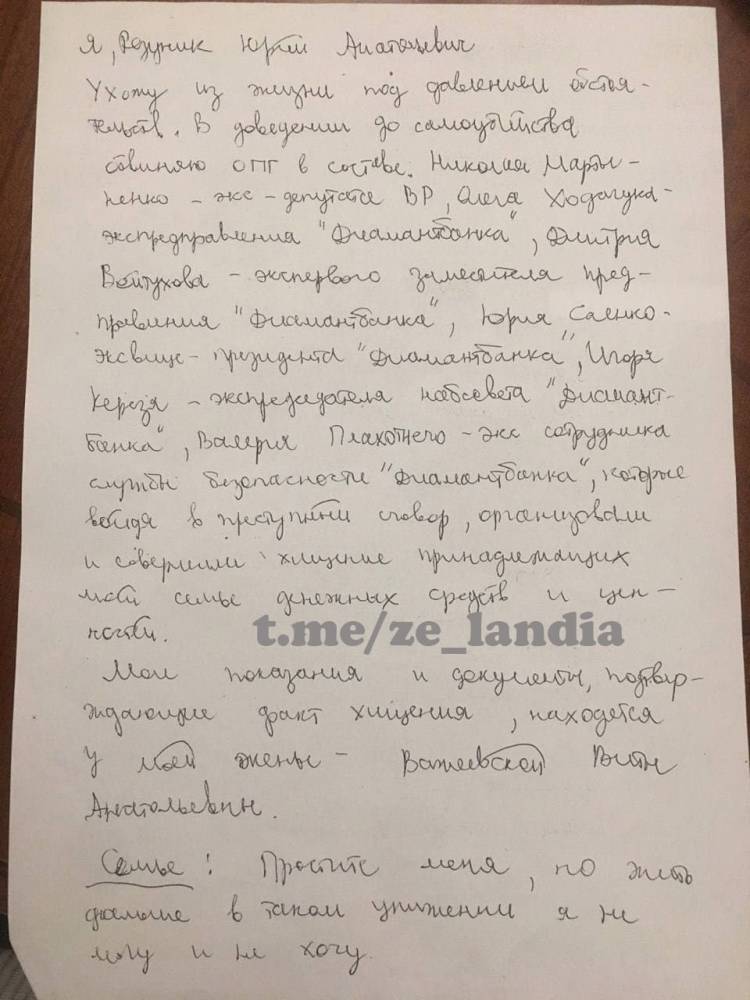 Я, Резуник Юрий Анатольевич
Ухожу из жизни под давлением обстоя-
тельств. В доведении до самоубийства
обвиняю ОПГ в составе: Николая Марты-
ненко - экс-депутата ВР, Олега Ходачука -
экспредправления "Диамантбанка", Дмитрия
Войтухова - экспервого заместителя пред-
правления "Диамантбанка", Юрия Саенко -
эксвице-президента "Диамантбанка", Игоря
Керезя - экспредседателя набсовета "Диамант-
банка", Валерия Плахотнего - экс сотрудника
службы безопасности "Диамантбанка", которые
войдя в преступный сговор, организовали
и совершили хищение принадлежащих
моей семье денежных средств и цен-
ностей.
t.me/ze_landia
Мои показания и документы, подтвер-
ждающие факт хищения, находятся
у моей жены -
Анатольевны.
Семье! Простите меня, но жить
дальше в таком унижении я не
могу и не хочу.